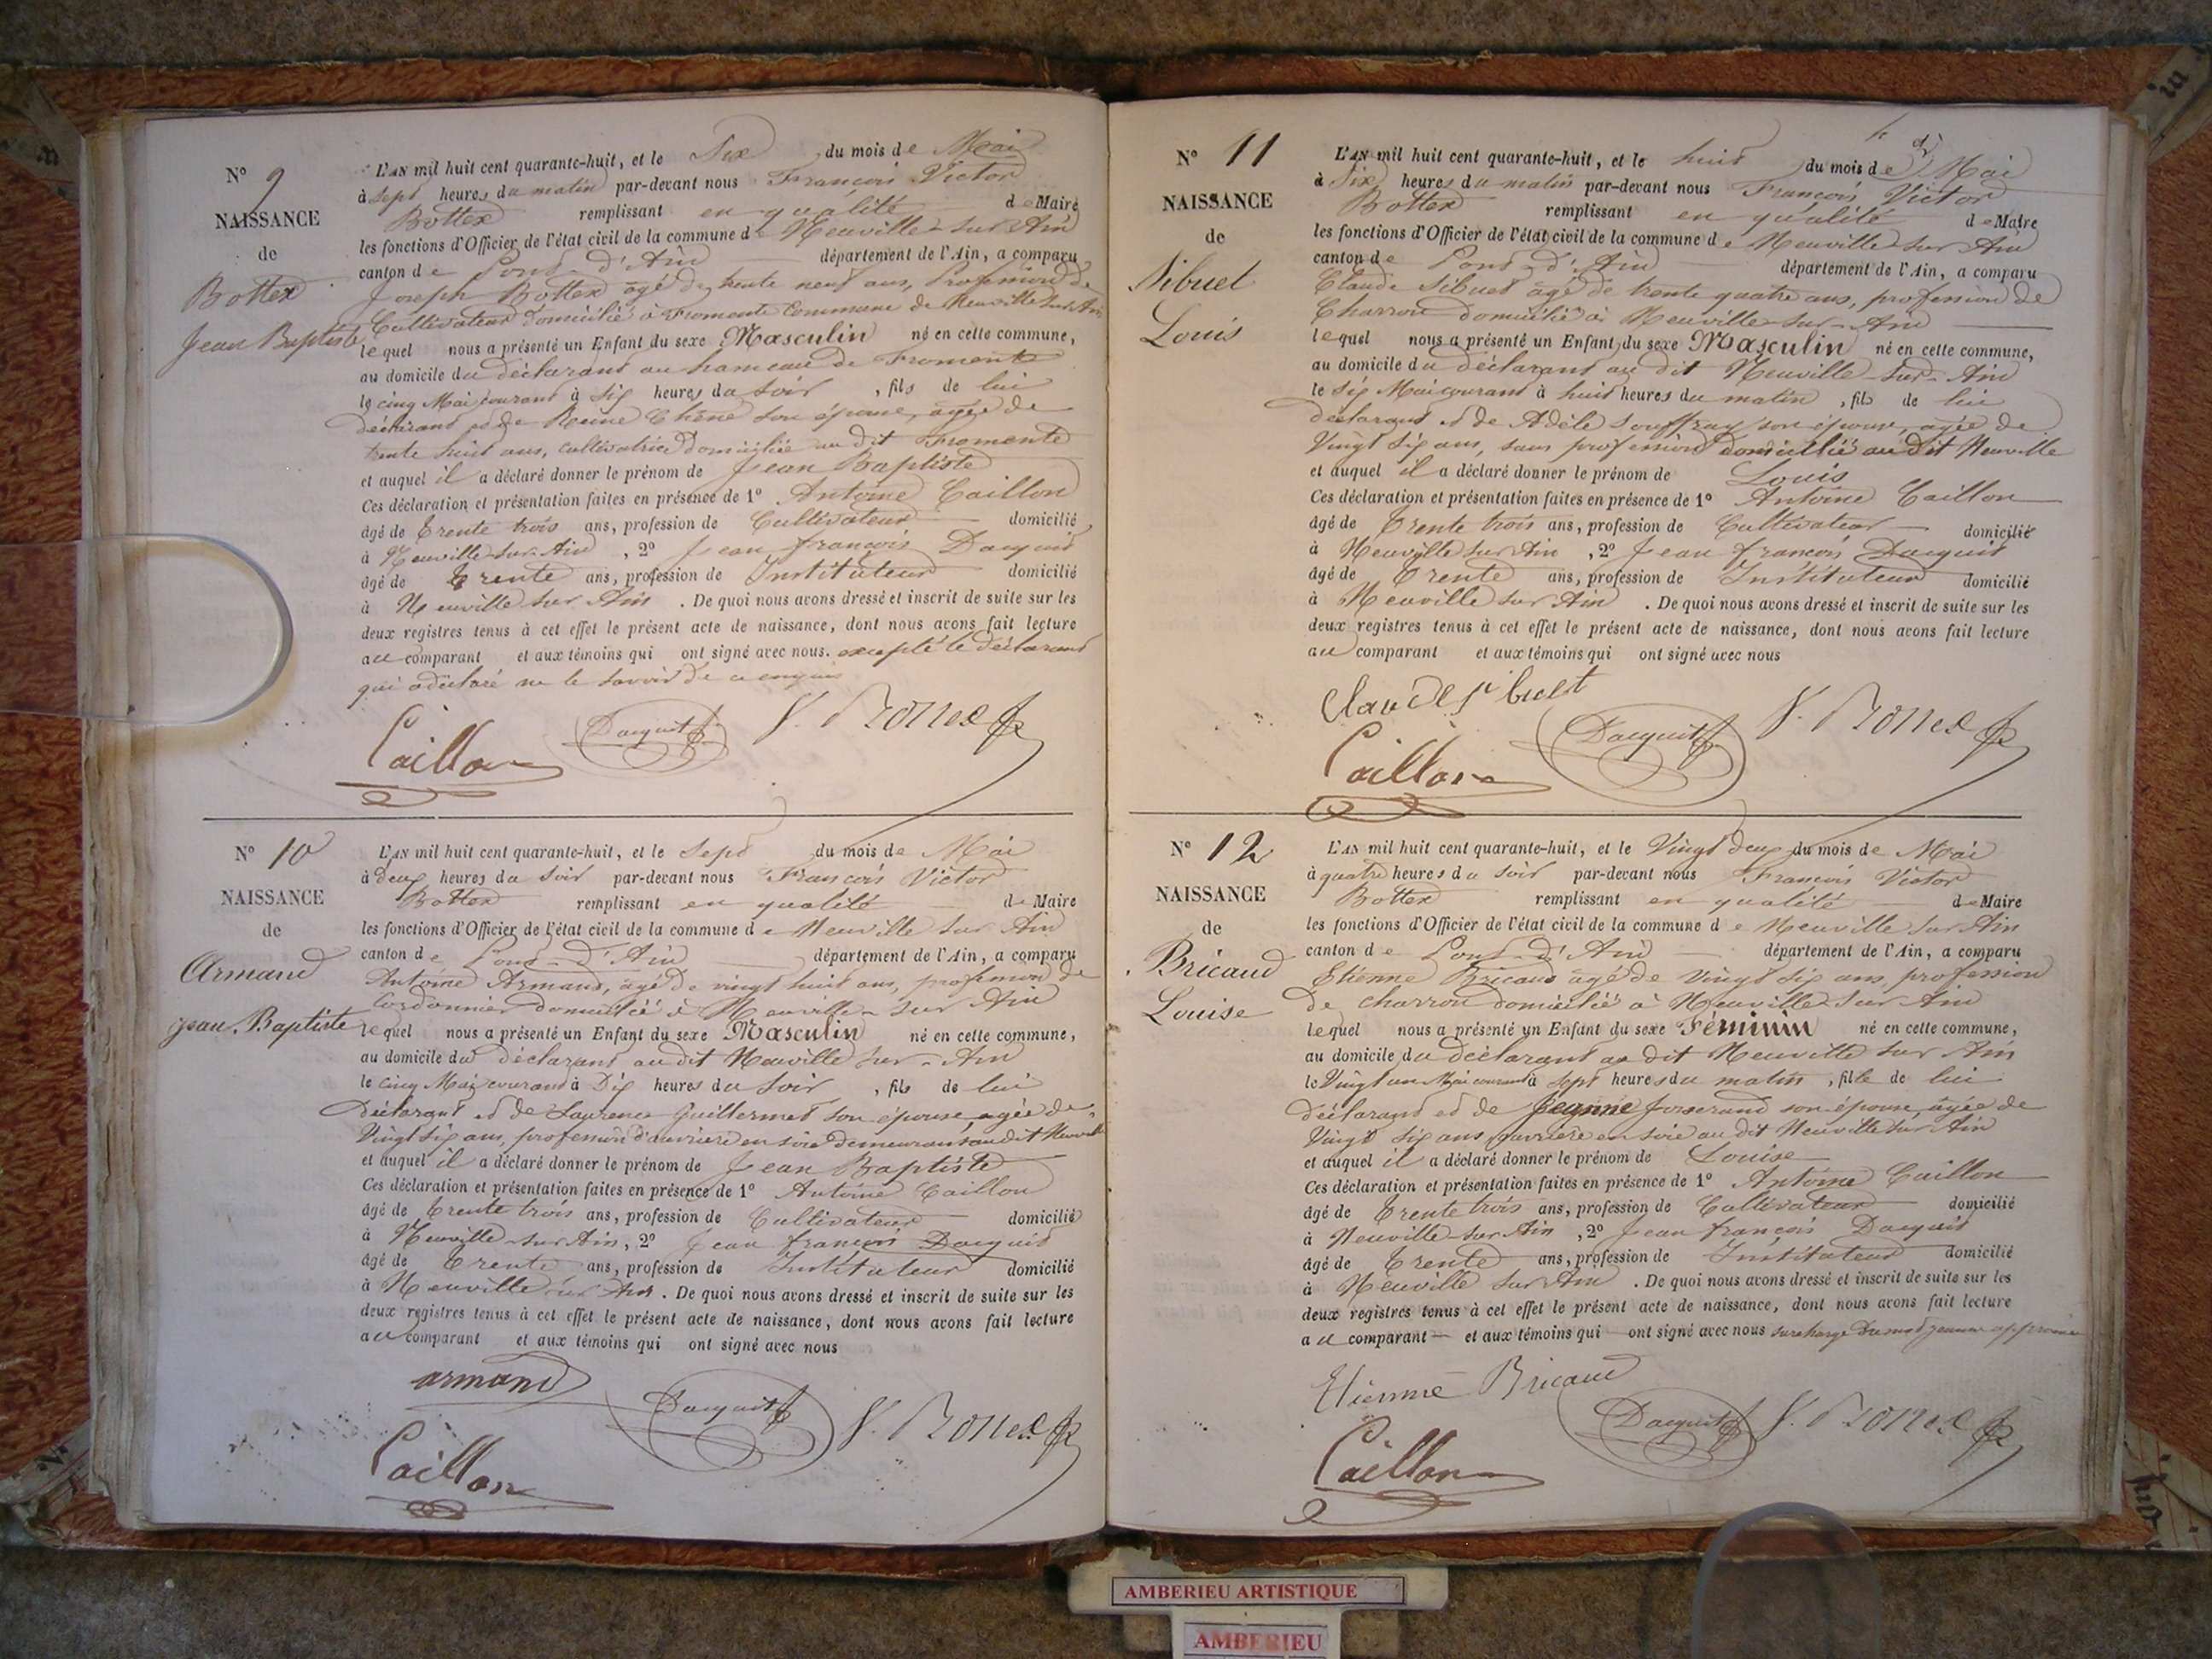 N° 9
NAISSANCE
de
Bottex
Jean Baptiste
L'AN mil huit cent quarante-huit, et le Six du mois de Mai
à Sept heures du matin par-devant nous François Victor
Bottex remplissant en qualité de Maire
les fonctions d'Officier de l'état civil de la commune de Neuville sur Ain
canton de Pont d'Ain département de l'Ain, a comparu
Joseph Bottex âgé de trente neuf ans, Profession de
Cultivateur domicilié à Fromente Commune de Neuville sur Ain
lequel nous a présenté un Enfant du sexe Masculin né en cette commune,
au domicile du déclarant au hameau de Fromente
le cinq Mai courant à six heures du soir, fils de lui
déclarant et de Reine Chêne son épouse, agée de
trente huit ans, cultivatrice domiciliée au dit Fromente
et auquel il a déclaré donner le prénom de Jean Baptiste
Ces déclaration et présentation faites en présence de 1° Antoine Caillon
âgé de trente trois ans, profession de Cultivateur domicilié
à Neuville-sur-Ain, 2° Jean françois Dacquit
âgé de trente ans, profession de Instituteur domicilié
à Neuville sur Ain. De quoi nous avons dressé et inscrit de suite sur les
deux registres tenus à cet effet le présent acte de naissance, dont nous avons fait lecture
au comparant et aux témoins qui ont signé avec nous. excepté le déclarant
qui a déclaré ne le savoir de ce enquis
Caillon Dacquit V. Bottex
N° 10
NAISSANCE
de
Armand
Jean-Baptiste
L'AN mil huit cent quarante-huit, et le Sept du mois de Mai
à deux heures du Soir par-devant nous François Victor
Bottex remplissant en qualité de Maire
les fonctions d'Officier de l'état civil de la commune de Neuville sur Ain
canton de Pont-d'Ain département de l'Ain, a comparu
Antoine Armand, âgé de vingt huit ans, profession de
Cordonnier domicilié à Neuville sur Ain
lequel nous a présenté un Enfant du sexe Masculin né en cette commune,
au domicile du déclarant au dit Neuville sur-Ain
le cinq Mai courant à Dix heures du Soir, fils de lui
Déclarant et de Laurence Guillermet son épouse, agée de
Vingt six ans, profession d'ouvrière en soie demeurant au dit Neuville
et auquel il a déclaré donner le prénom de Jean Baptiste
Ces déclaration et présentation faites en présence de 1° Antoine Caillon
âgé de trente trois ans, profession de Cultivateur domicilié
à Neuville-sur Ain, 2° Jean françois Dacquit
âgé de trente ans, profession de Instituteur domicilié
à Neuville sur Ain. De quoi nous avons dressé et inscrit de suite sur les
deux registres tenus à cet effet le présent acte de naissance, dont nous avons fait lecture
au comparant et aux témoins qui ont signé avec nous
armand Dacquit V. Bottex
Caillon
N° 11
NAISSANCE
de
Sibuet
Louis
L'AN mil huit cent quarante-huit, et le huit du mois de Mai
à Six heures du matin par-devant nous François Victor
Bottex remplissant en qualité de Maire
les fonctions d'Officier de l'état civil de la commune de Neuville-sur Ain
canton de Pont-d'Ain département de l'Ain, a comparu
Claude Sibuet âgé de trente quatre ans, profession de
Charron domicilié à Neuville-sur-Ain
lequel nous a présenté un Enfant du sexe Masculin né en cette commune,
au domicile du déclarant au dit Neuville-sur-Ain
le six Mai courant à huit heures du matin, fils de lui
déclarant et de Adèle Souffray son épouse, agée de
Vingt six ans, sans profession domiciliée au dit Neuville
et auquel il a déclaré donner le prénom de Louis
Ces déclaration et présentation faites en présence de 1° Antoine Caillon
âgé de trente trois ans, profession de Cultivateur domicilié
à Neuville sur Ain, 2° Jean françois Dacquit
âgé de trente ans, profession de Instituteur domicilié
à Neuville sur Ain. De quoi nous avons dressé et inscrit de suite sur les
deux registres tenus à cet effet le présent acte de naissance, dont nous avons fait lecture
au comparant et aux témoins qui ont signé avec nous
Claude Sibuet
Caillon Dacquit V. Bottex
N° 12
NAISSANCE
de
Bricaud
Louise
L'AN mil huit cent quarante-huit, et le Vingt deux du mois de Mai
à quatre heures du soir par-devant nous François Victor
Bottex remplissant en qualité de Maire
les fonctions d'Officier de l'état civil de la commune de Neuville sur Ain
canton de Pont-d'Ain département de l'Ain, a comparu
Etienne Bricaud âgé de Vingt six ans, profession
de charron domicilié à Neuville-sur Ain
lequel nous a présenté un Enfant du sexe Féminin né en cette commune,
au domicile du déclarant au dit Neuville sur Ain
le Vingt un Mai courant à sept heures du matin, fille de lui
déclarant et de Jeanne Josserand son épouse, âgée de
Vingt six ans, ouvrière en soie au dit Neuville sur Ain
et auquel il a déclaré donner le prénom de Louise
Ces déclaration et présentation faites en présence de 1° Antoine Caillon
âgé de trente trois ans, profession de Cultivateur domicilié
à Neuville-sur Ain, 2° Jean françois Dacquit
âgé de trente ans, profession de Instituteur domicilié
à Neuville sur Ain. De quoi nous avons dressé et inscrit de suite sur les
deux registres tenus à cet effet le présent acte de naissance, dont nous avons fait lecture
au comparant et aux témoins qui ont signé avec nous surcharge du mot Jeanne approuvée
Etienne Bricaud
Caillon Dacquit V. Bottex
AMBERIEU ARTISTIQUE
AMBERIEU